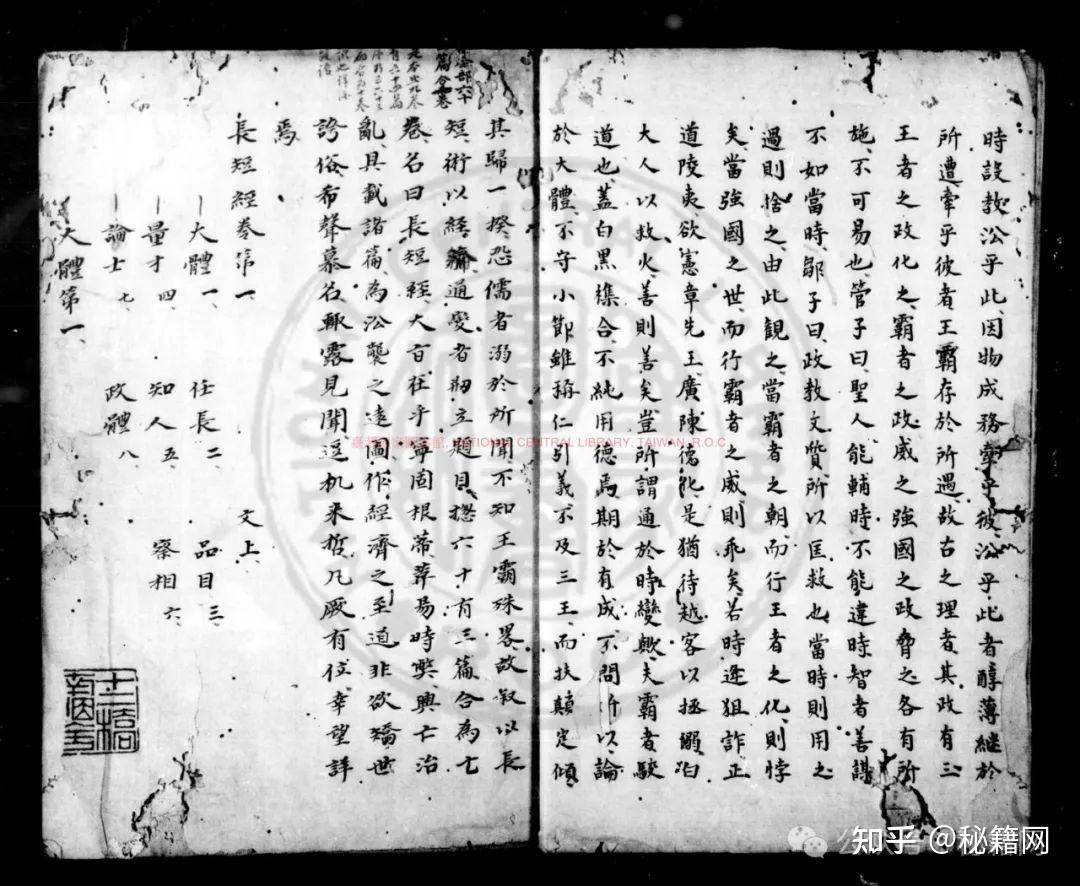 時設教㳂乎此因物成務牽乎彼㳂乎此者醇薄継於
所遭牽乎彼者王霸存於所遇故古之理者其政有三
王者之政化之霸者之政威之強國之政脅之各有所
施不可易也管子曰聖人能輔時不能違時智者善謀
不如當時鄒子曰政教文質所以匡救也當時則用之
過則捨之由此観之當霸者之朝而行王者之化則悖
矣當強國之世而行霸者之威則乖矣若時逢狙詐正
道陵夷欲憲章先王廣陳德化是猶待越客以拯溺
大人以救火善則善矣豈所謂通於時變歟夫霸者駮
道也蓋白黒襍合不純用德焉期於有成不問所以論
於大體不守小節雖稱仁引義不及三王而扶顛定傾
其歸一揆恐儒者溺於所聞不知王霸殊畧故叙以長
短術以經通變者剏立題目惣六十有三篇合為七
卷名曰長短經大旨在乎寧固根蒂革易時弊興亡治
亂具載諸篇為㳂襲之遠圖作經濟之至道非欲矯世
誇俗希聲慕名輙露見聞逗机来哲凡厥有位幸望詳
焉
長短經卷第一 文上
大體一 任長二 品目三
量才四 知人五 察相六
論士七 政體八
大體第一
NATIONAL CENTRAL LIBRARY, TAIWAN, R.O.C.
知乎 @秘籍网